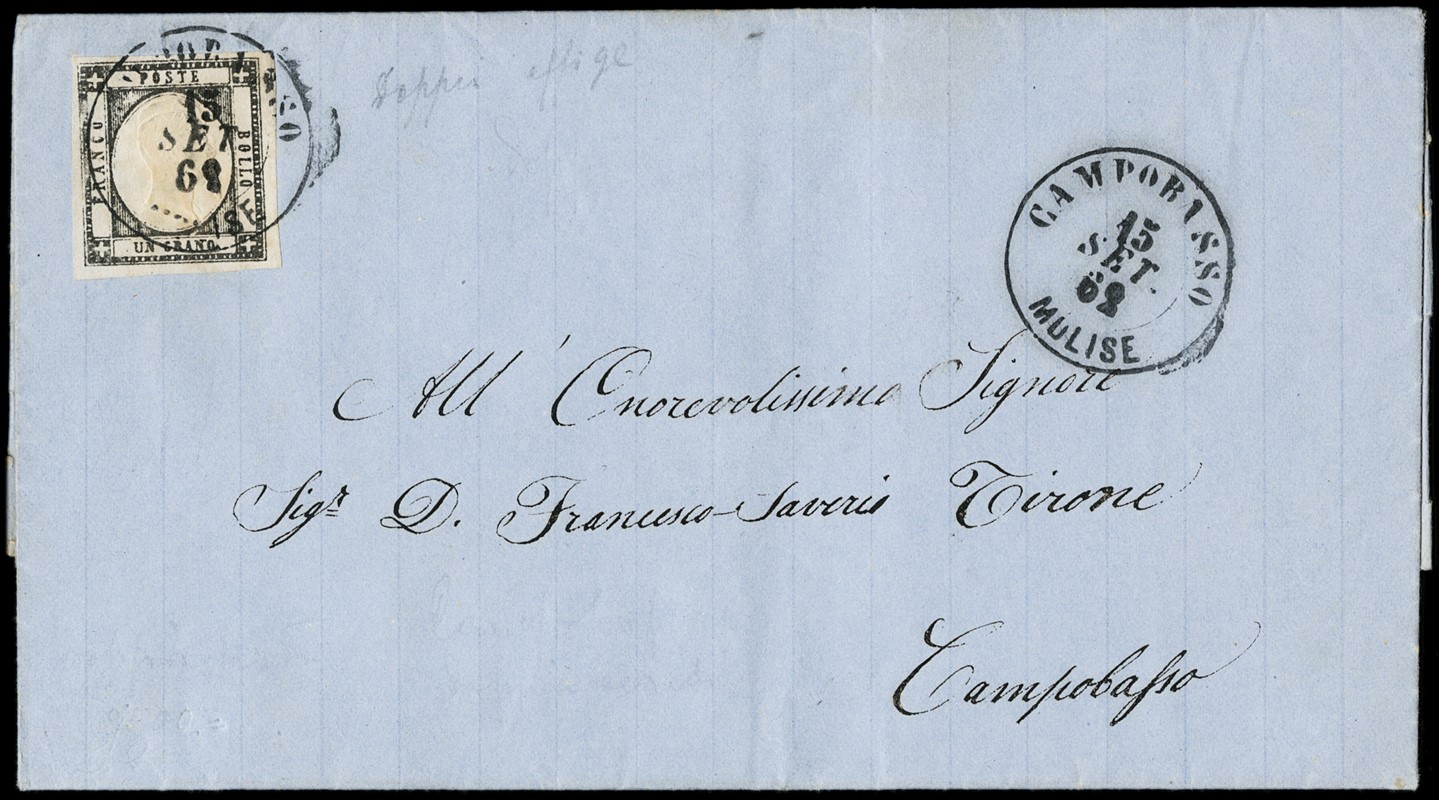 POSTE
FRANCO
BOLLO
UN GRANO
15
SET
62
Doppia effige
CAMPOBASSO
15
SET.
62
MOLISE
All' Onorevolissimo Signore
Sigr. D. Francesco Saverio Tirone
Campobasso